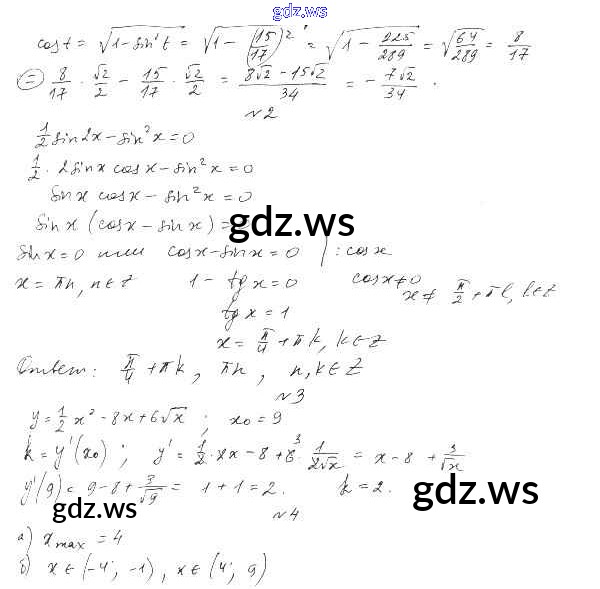 gdz.ws
cos t = √(1 - sin² t) = √(1 - (15/17)²) = √(1 - 225/289) = √(64/289) = 8/17
⊜ 8/17 · √2/2 - 15/17 · √2/2 = (8√2 - 15√2)/34 = - 7√2/34 .
№2
1/2 sin 2x - sin² x = 0
1/2 · 2 sin x cos x - sin² x = 0
sin x cos x - sin² x = 0
sin x (cos x - sin x) =
gdz.ws
sin x = 0 или cos x - sin x = 0 | : cos x
x = πn, n ∈ Z 1 - tg x = 0 cos x ≠ 0
x ≠ π/2 + πl, l ∈ Z
tg x = 1
x = π/4 + πk, k ∈ Z
Ответ: π/4 + πk, πn, n, k ∈ Z
№3
y = 1/2 x² - 8x + 6√x ; x₀ = 9
k = y'(x₀) ; y' = 1/2 · 2x - 8 + 6 · 1/(2√x) = x - 8 + 3/√x
y'(9) = 9 - 8 + 3/√9 = 1 + 1 = 2. k = 2.
gdz.ws
gdz.ws
№4
а) x max = 4
б) x ∈ (-4; -1), x ∈ (4; 9)